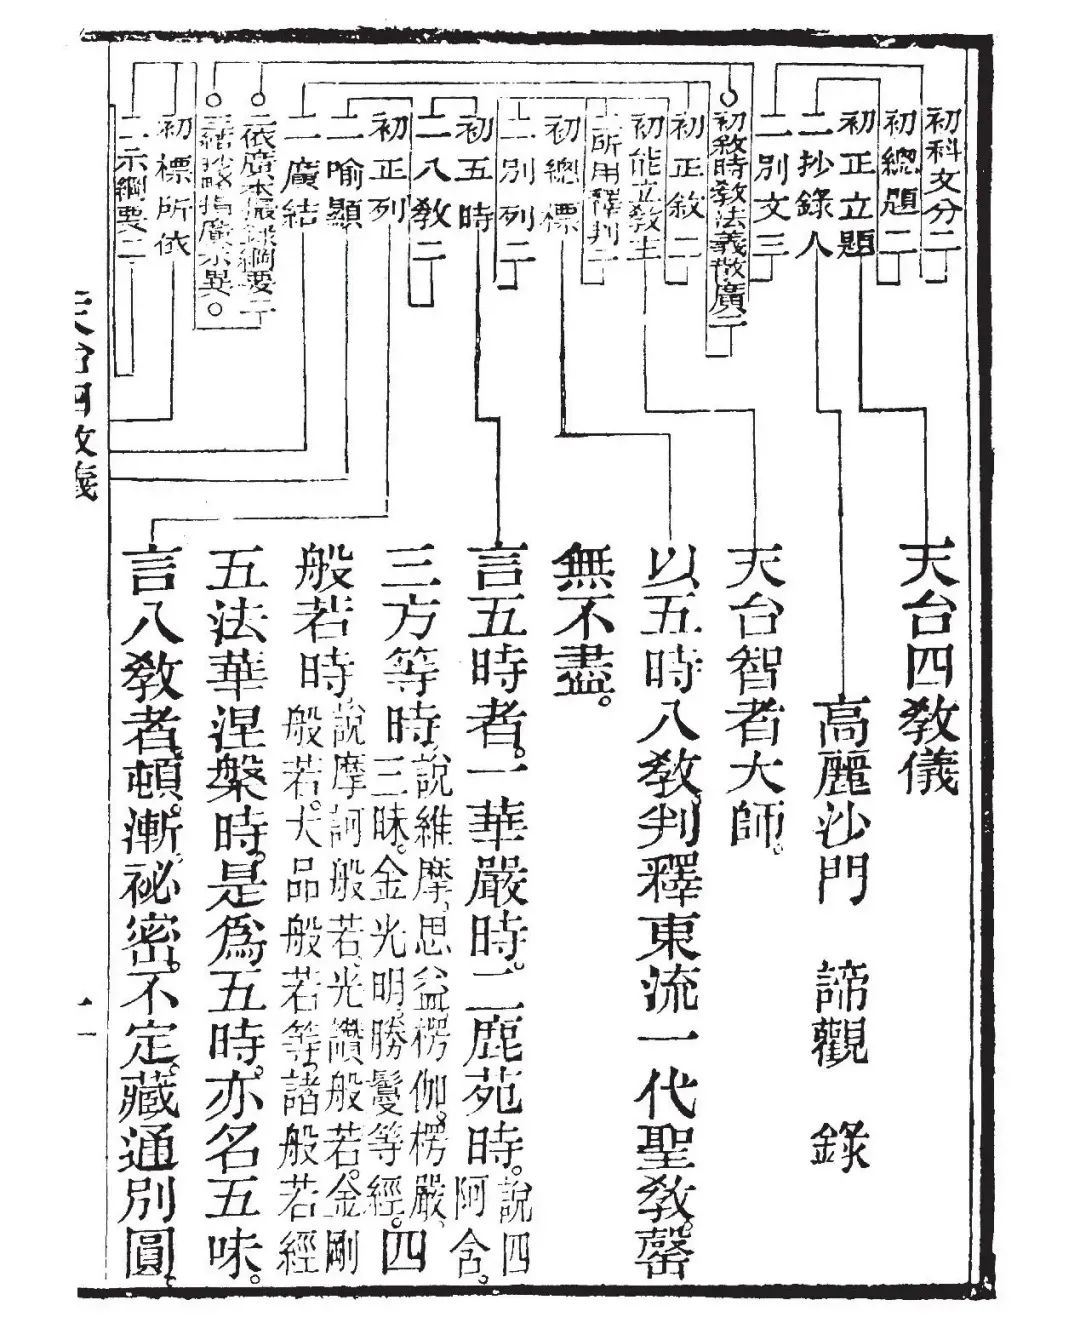 初科文分二
初總題二
初正立題
二抄錄人
二別文三
初敘時敎法義散廣二
初正敘二
初能立敎主
二所用釋判二
初總標
二別列二
初五時
二八敎二
初正列
二喻顯
二廣結
二依廣本攝錄綱要二
三結抄略指廣示異
初標所依
二示綱要二
天台四敎儀
高麗沙門　諦觀　錄
天台智者大師。
以五時八敎。判釋東流一代聖敎。罄
無不盡。
言五時者。一華嚴時。二鹿苑時。說四
阿含。
三方等時。說維摩。思益。楞伽。楞嚴。
三昧。金光明。勝鬘等經。四
般若時。說摩訶般若。光讚般若。金剛
般若。大品般若等。諸般若經
五法華涅槃時。是爲五時。亦名五味。
言八敎者。頓。漸。祕密。不定。藏通別圓。
天台四敎儀
一